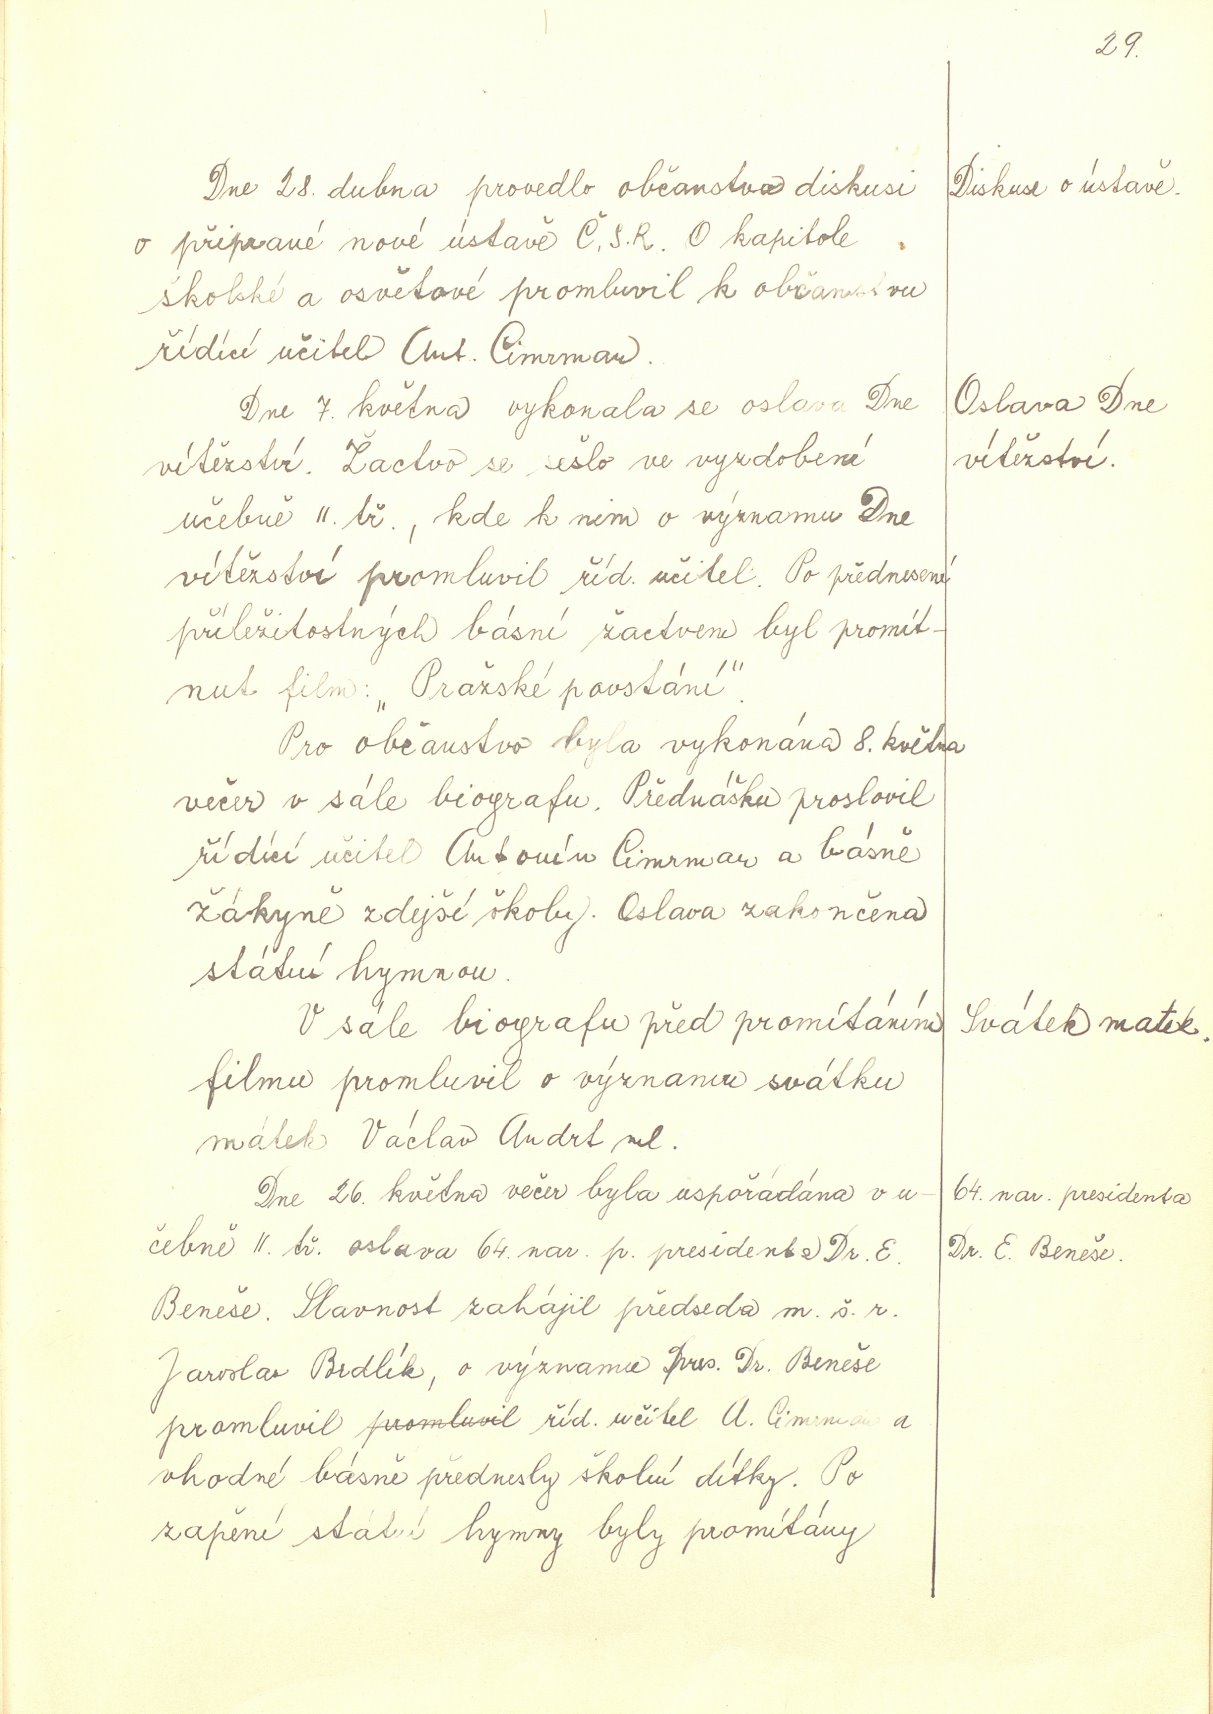 29.
Dne 28. dubna provedlo občanstvo diskusi
Diskuse o ústavě.
o připravé nové ústavě Č.S.R. O kapitole
školské a osvětové promluvil k občanstvu
řídící učitel Ant. Cimrman.
Dne 7. května vykonala se oslava Dne
Oslava Dne
vítězství. Žactvo se sešlo ve vyzdobené
vítězství.
učebně II. tř., kde k nim o významu Dne
vítězství promluvil říd. učitel. Po přednesení
příležitostných básní žactvem byl promít-
nut film: „Pražské povstání".
Pro občanstvo byla vykonána 8. května
večer v sále biografu. Přednášku proslovil
řídící učitel Antonín Cimrman a básně
žákyně zdejší školy. Oslava zakončena
státní hymnou.
V sále biografu před promítáním
Svátek matek.
filmu promluvil o významu svátku
mátek Václav Andrt ml.
Dne 26. května večer byla uspořádána v u-
64. nar. presidenta
čebně II. tř. oslava 64. nar. p. presidenta Dr. E.
Dr. E. Beneše.
Beneše. Slavnost zahájil předseda m. š. r.
Jaroslav Brdlík, o významu pres. Dr. Beneše
promluvil promluvil říd. učitel A. Cimrman a
vhodné básně přednesly školní dítky. Po
zapění státní hymny byly promítány